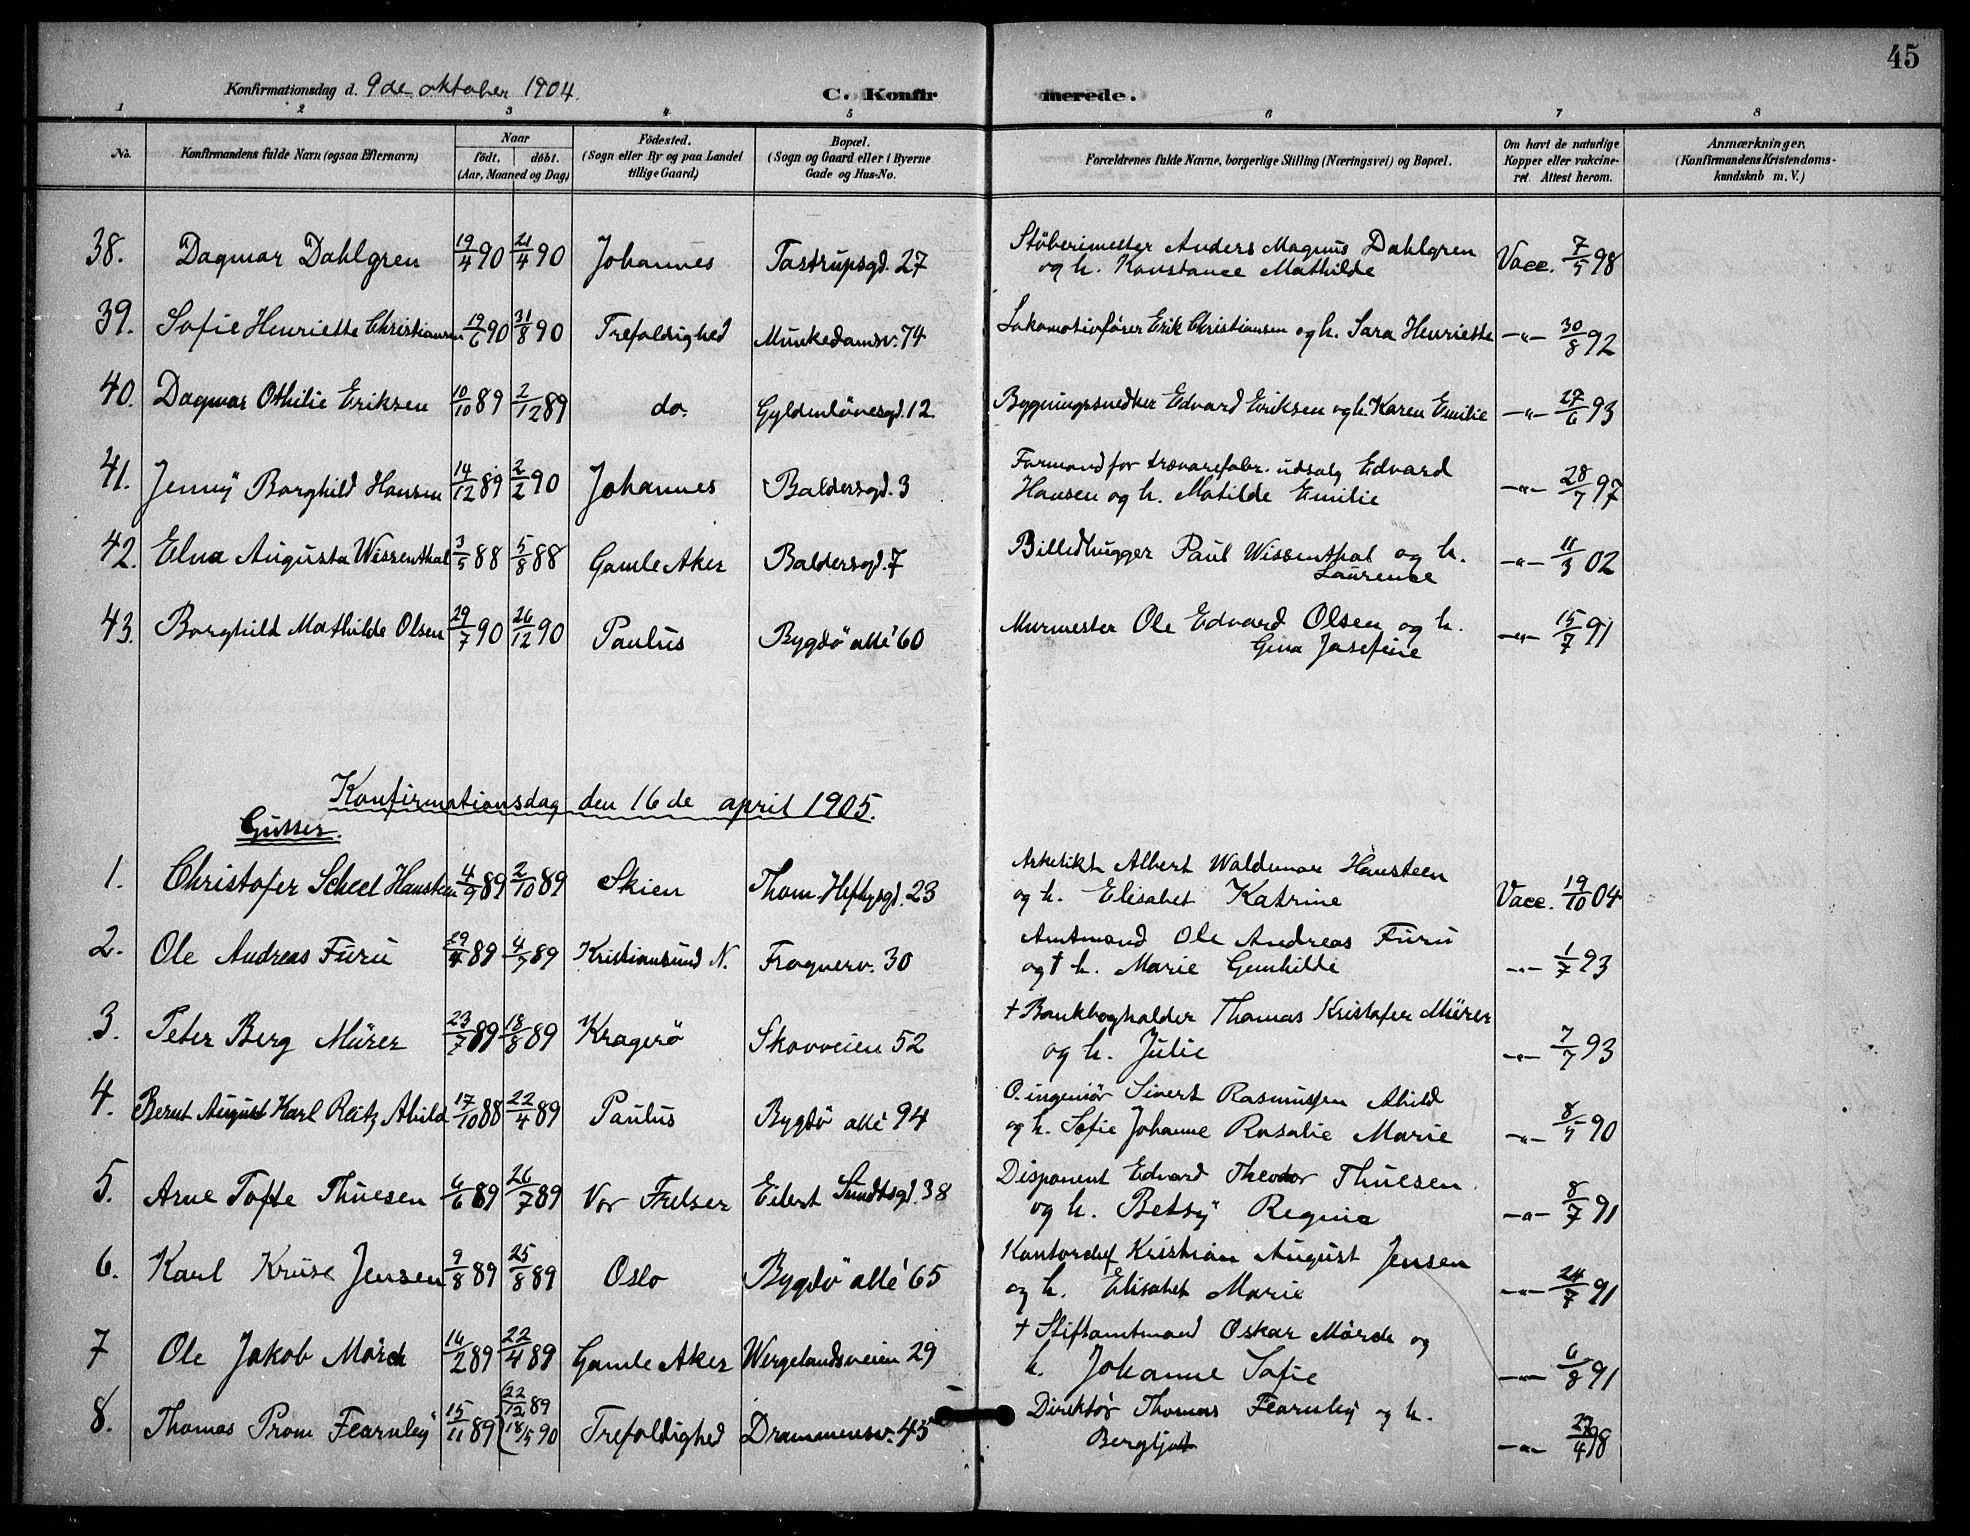 45
Konfirmationsdag d. 9de oktober 1904.
C. Konfirmerede.
1 2 3 4 5 6 7 8
No.
Konfirmandens fulde Navn (ogsaa Efternavn)
Naar
födt. döbt.
(Aar, Maaned og Dag)
Födested.
(Sogn eller By og paa Landet
tillige Gaard)
Bopæl.
(Sogn og Gaard eller i Byerne
Gade og Hus-No.
Forældrenes fulde Navne, borgerlige Stilling (Næringsvei) og Bopæl.
Om havt de naturlige
Kopper eller vakcine-
ret. Attest herom.
Anmærkninger,
(Konfirmandens Kristendoms-
kundskab m. V.)
38. Dagmar Dahlgren 19/4 90 21/4 90 Johannes Tostrupsgd. 27 Støberimester Anders Magnus Dahlgren Vacc. 7/5 98
og h. Konstance Mathilde
39. Sofie Henriette Christiansen 19/6 90 31/8 90 Trefoldighed Munkedamsv. 74 Lokomotivfører Erik Christiansen og h. Sara Henriette -"- 30/8 92
40. Dagmar Othilie Eriksen 10/10 89 2/12 89 do. Gyldenløvesgd. 12 Bygningssnedker Edvard Eriksen og h. Karen Emilie -"- 27/6 93
41. Jenny Borghild Hansen 14/12 89 2/2 90 Johannes Baldersgd. 3 Formand for trævarefabr. udsalg Edvard
Hansen og h. Matilde Emilie -"- 28/7 97
42. Elna Augusta Wissenthal 3/5 88 5/8 88 Gamle Aker Baldersgd. 7 Billedhugger Paul Wissenthal og h. -"- 11/3 02
Laurence
43. Borghild Mathilde Olsen 29/7 90 26/12 90 Paulus Bygdö allé 60 Murmester Ole Edvard Olsen og h. -"- 15/7 91
Gina Josefine
Konfirmationsdag den 16de april 1905.
Gutter.
1. Christofer Scheel Hansteen 4/9 89 2/10 89 Skien Thom. Heftysgd. 23 Arkitekt Albert Waldemar Hansteen
og h. Elisabet Katrine Vacc. 19/10 04
2. Ole Andreas Furu 29/4 89 4/7 89 Kristiansund N. Frognerv. 30 Amtmand Ole Andreas Furu
og † h. Marie Gunhilde -"- 1/7 93
3. Peter Berg Mürer 23/7 89 18/8 89 Kragerö Skovveien 52 † Bankbogholder Thomas Kristofer Mürer
og h. Julie -"- 7/7 93
4. Bernt August Karl Reitz Abild 17/10 88 22/4 89 Paulus Bygdö allé 94 O.ingeniör Sivert Rasmussen Abild
og h. Sofie Johanne Rosalie Marie -"- 8/5 90
5. Arne Tofte Thuesen 6/6 89 26/7 89 Vor Frelser Eilert Sundtsgd. 38 Disponent Edvard Theodor Thuesen
og h. Betsy Regina -"- 8/7 91
6. Karl Kruse Jensen 9/8 89 25/8 89 Oslo Bygdö allé 65 Kontorchef Kristian August Jensen
og h. Elisabet Marie -"- 24/7 91
7 Ole Jakob Mörch 16/2 89 22/4 89 Gamle Aker Wergelandsveien 29 † Stiftamtmand Oskar Mörch og
h. Johanne Sofie -"- 6/8 91
8. Thomas Prom Fearnley 15/11 89 (22/12 89 18/5 90 Trefoldighed Drammensv. 45 Direktör Thomas Fearnley og h.
Bergljot -"- 27/4 98